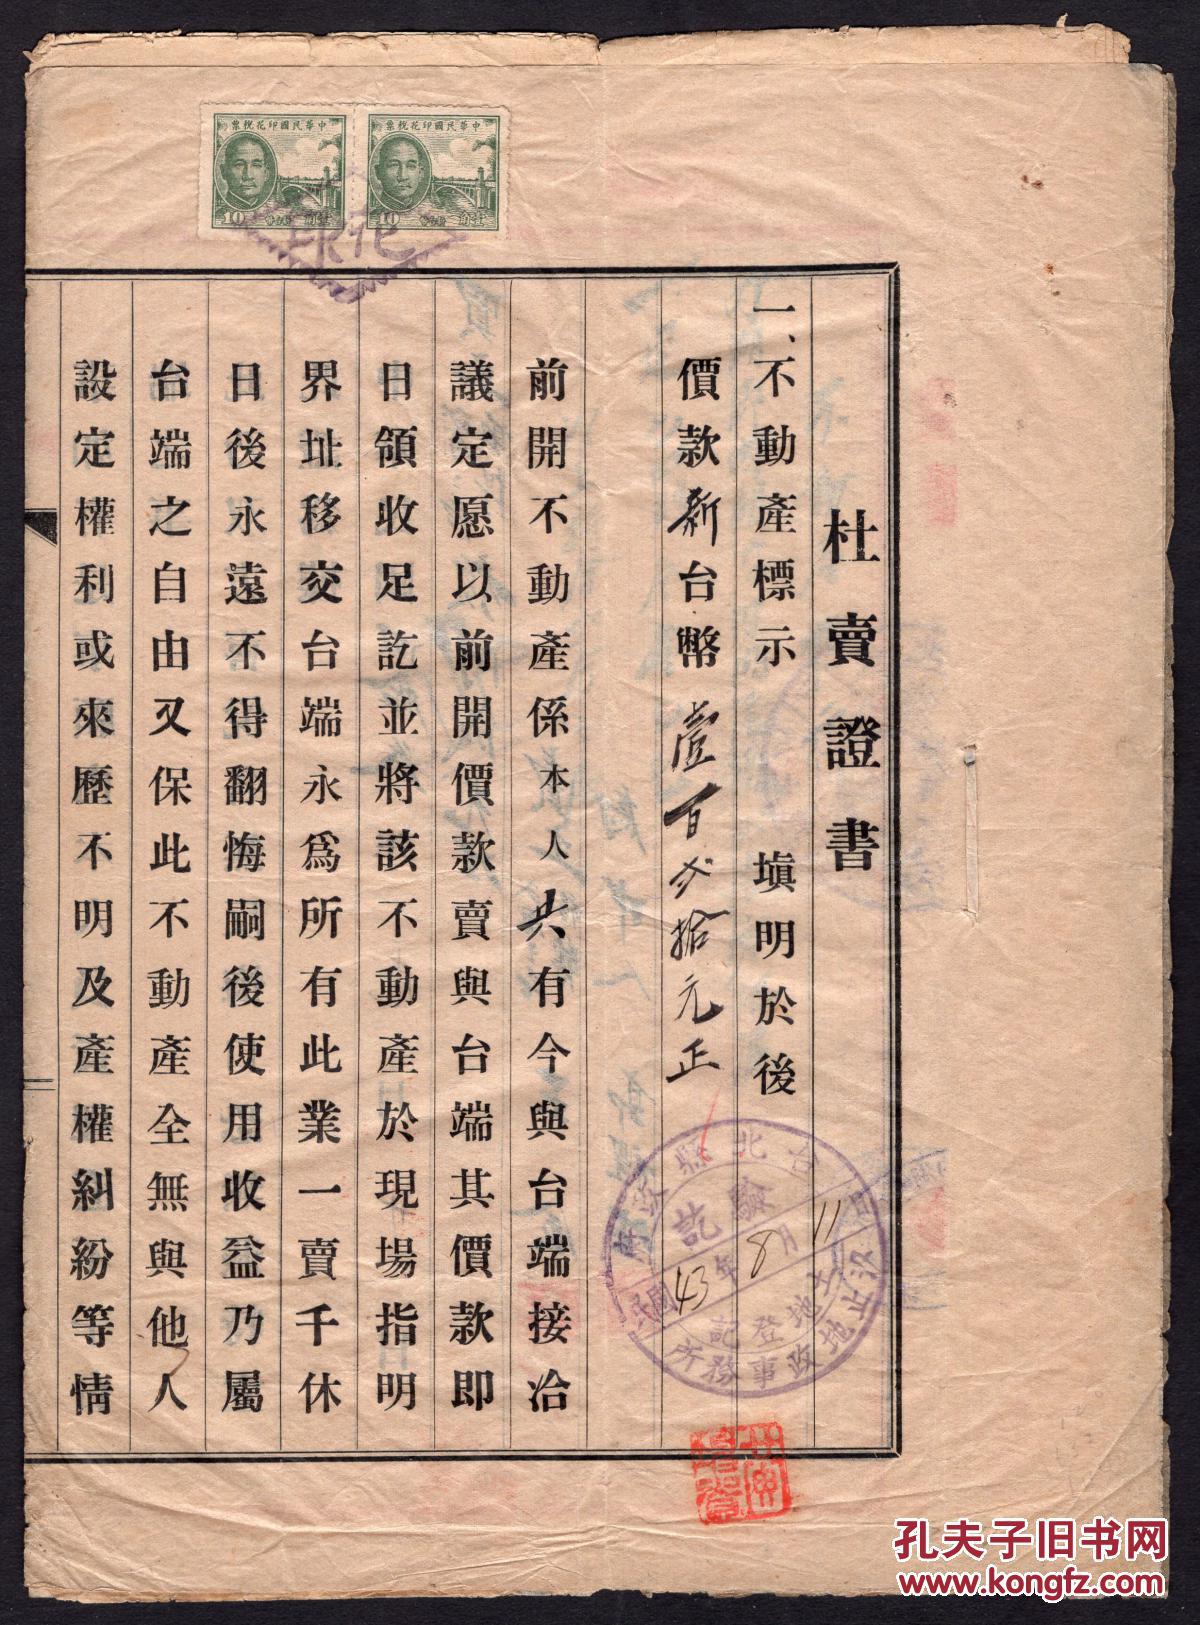 中華民國印花稅票
中華民國印花稅票
10
10
杜賣證書
一、不動產標示　填明於後
價款新台幣壹百弍拾元正
前開不動產係本人共有今與台端接洽
議定愿以前開價款賣與台端其價款即
日領收足訖並將該不動產於現場指明
界址移交台端永爲所有此業一賣千休
日後永遠不得翻悔嗣後使用收益乃屬
台端之自由又保此不動產全無與他人
設定權利或來歷不明及產權糾紛等情
台北縣政府
驗訖
民國43年8月11日
土地登記
汐止地政事務所
孔夫子旧书网
www.kongfz.com